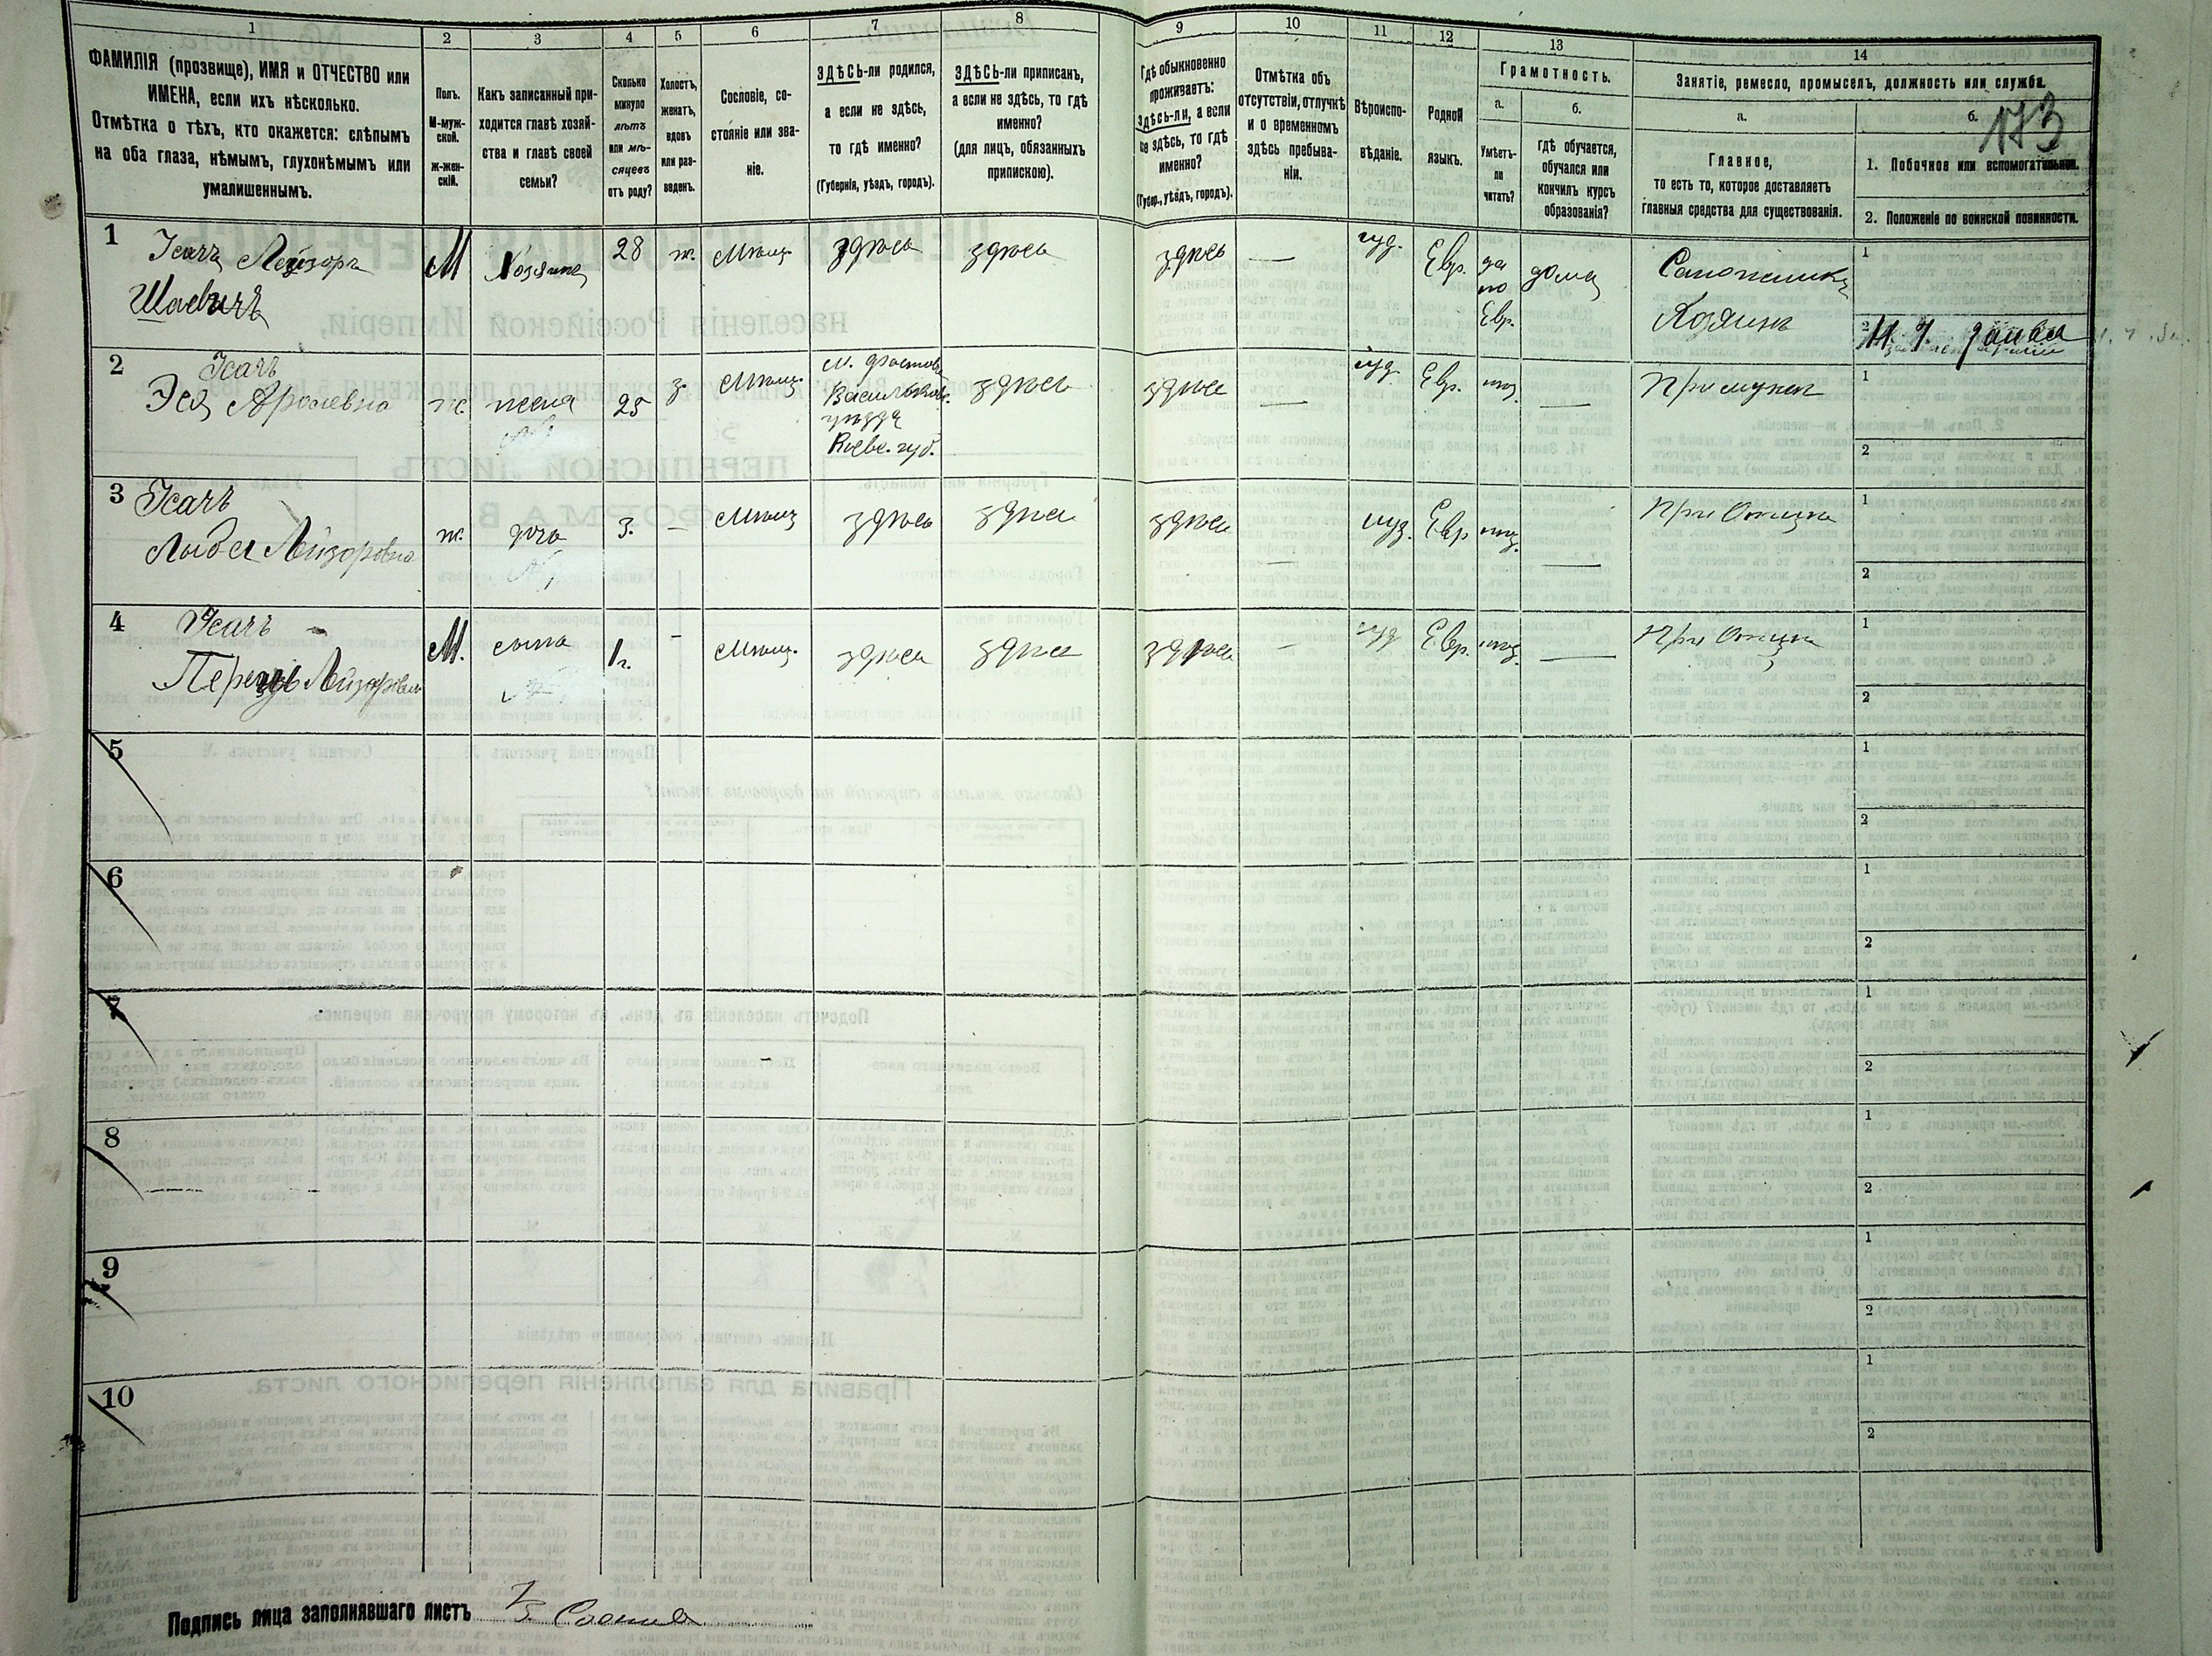 1
ФАМИЛІЯ (прозвище), ИМЯ и ОТЧЕСТВО или
ИМЕНА, если ихъ нѣсколько.
Отмѣтка о тѣхъ, кто окажется: слѣпымъ
на оба глаза, нѣмымъ, глухонѣмымъ или
умалишеннымъ.
2
Полъ.
М-муж-
ской.
ж-жен-
скій.
3
Какъ записанный при-
ходится главѣ хозяй-
ства и главѣ своей
семьи?
4
Сколько
минуло
лѣтъ
или мѣ-
сяцевъ
отъ роду?
5
Холостъ,
женатъ,
вдовъ
или раз-
веденъ.
6
Сословіе, со-
стояніе или зва-
ніе.
7
ЗДѢСЬ-ли родился,
а если не здѣсь,
то гдѣ именно?
(Губернія, уѣздъ, городъ).
8
ЗДѢСЬ-ли приписанъ,
а если не здѣсь, то гдѣ
именно?
(для лицъ, обязанныхъ
припискою).
9
Гдѣ обыкновенно
проживаетъ:
здѣсь-ли, а если
не здѣсь, то гдѣ
именно?
(Губер., уѣздъ, городъ).
10
Отмѣтка объ
отсутствіи, отлучкѣ
и о временномъ
здѣсь пребыва-
ніи.
11
Вѣроиспо-
вѣданіе.
12
Родной
языкъ.
13
Грамотность.
а.
Умѣетъ-
ли
читать?
б.
гдѣ обучается,
обучался или
кончилъ курсъ
образованія?
14
Занятіе, ремесло, промыселъ, должность или служба.
а.
Главное,
то есть то, которое доставляетъ
главныя средства для существованія.
б.
173
1. Побочное или вспомогательное.
2. Положеніе по воинской повинности.
1
Исачъ Лейзоръ
Шаевичъ
М
Хозяинъ
28
ж.
Мѣщ.
здѣсь
здѣсь
здѣсь
—
іуд.
Евр.
да
по
Евр.
дома
Сапожникъ
Хозяинъ
1
2
2
Исачъ
Эся Ароневна
ж.
жена
25
з.
Мѣщ.
м. Фастовъ
Васильковс.
уѣзда
Кіевс. губ.
здѣсь
здѣсь
—
іуд.
Евр.
нѣт.
—
При мужѣ
1
2
3
Исачъ
Лейзоровна
ж.
дочь
3.
—
Мѣщ
здѣсь
здѣсь
здѣсь
—
іуд.
Евр
нѣт.
—
При Отцѣ
1
2
4
Исачъ
М.
сынъ
1г.
-
Мѣщ.
здѣсь
здѣсь
здѣсь
—
іуд
Евр.
нѣт.
—
При Отцѣ
1
2
5
1
2
6
1
2
7
1
2
8
1
2
9
1
2
10
1
2
Подпись лица заполнявшаго листъ